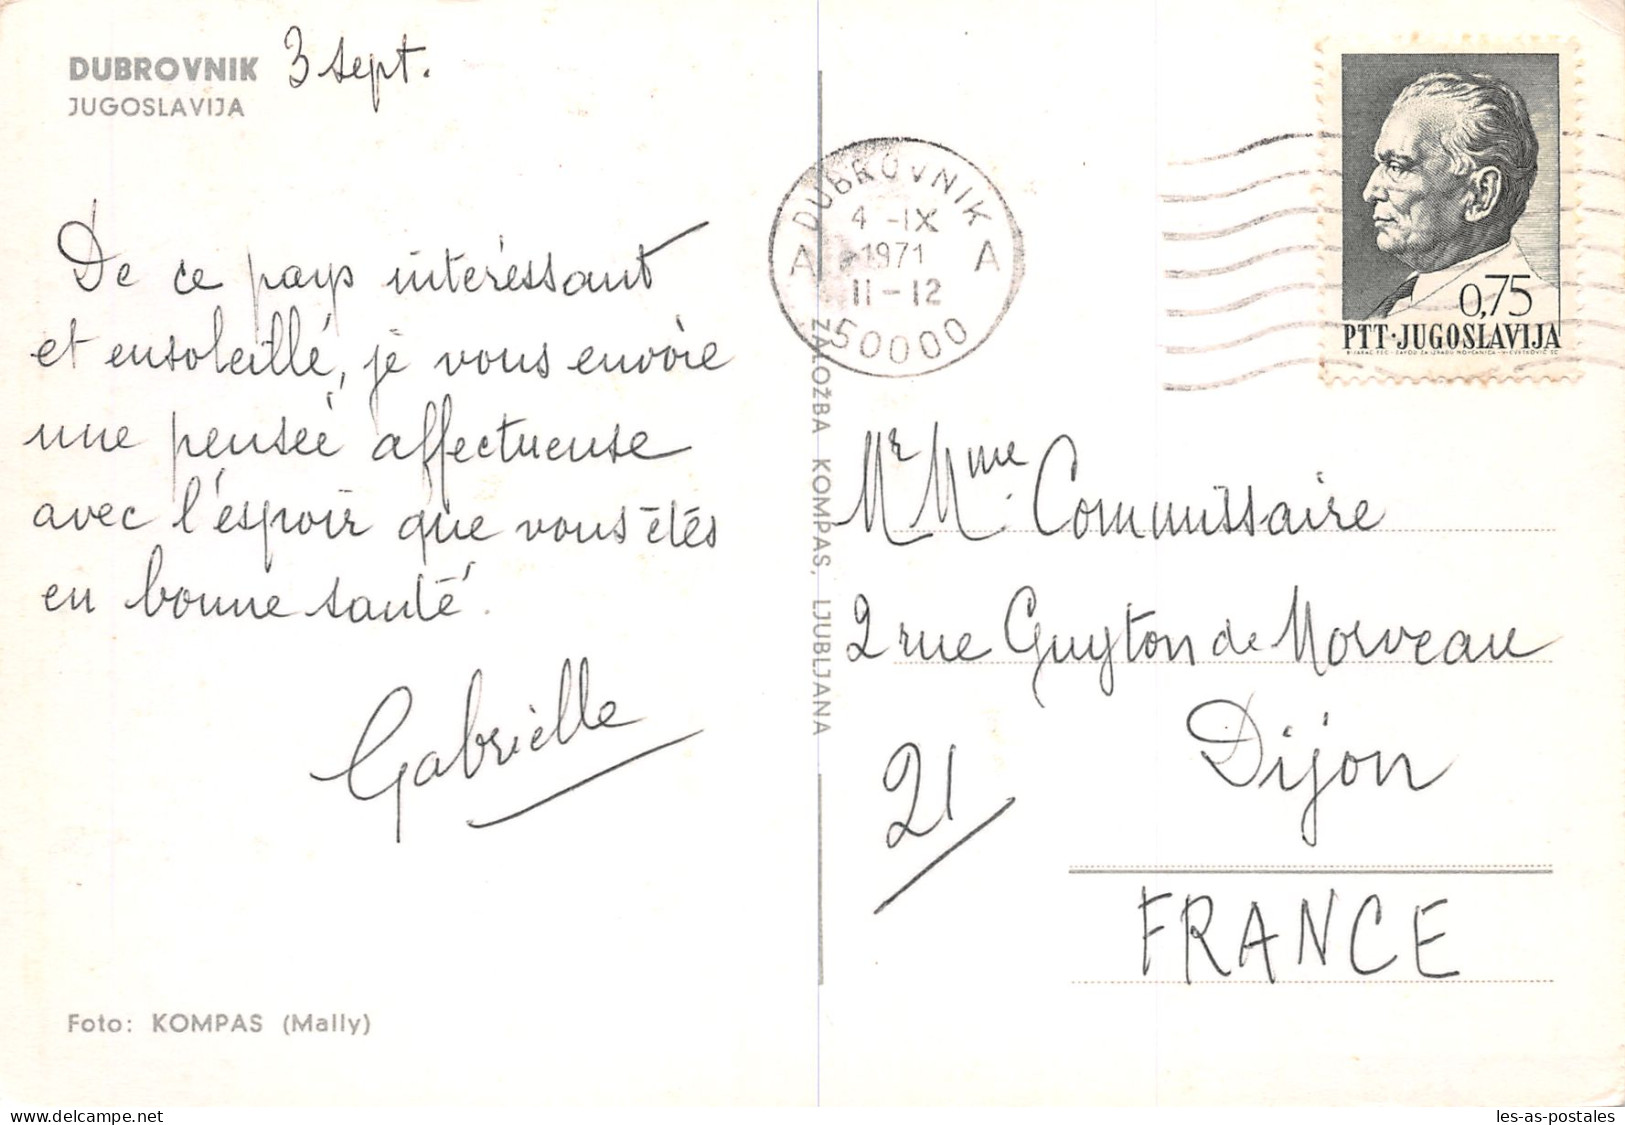 DUBROVNIK 3 sept.
JUGOSLAVIJA
De ce pays intéressant
et ensoleillé, je vous envoie
une pensée affectueuse
avec l'espoir que vous êtes
en bonne santé.
Gabrielle
Foto: KOMPAS (Mally)
ZALOŽBA KOMPAS, LJUBLJANA
A DUBROVNIK A
4-IX
1971
11-12
50000
0,75
PTT·JUGOSLAVIJA
Mr Mme Commissaire
2 rue Guyton de Morveau
Dijon
21
FRANCE
les-as-postales